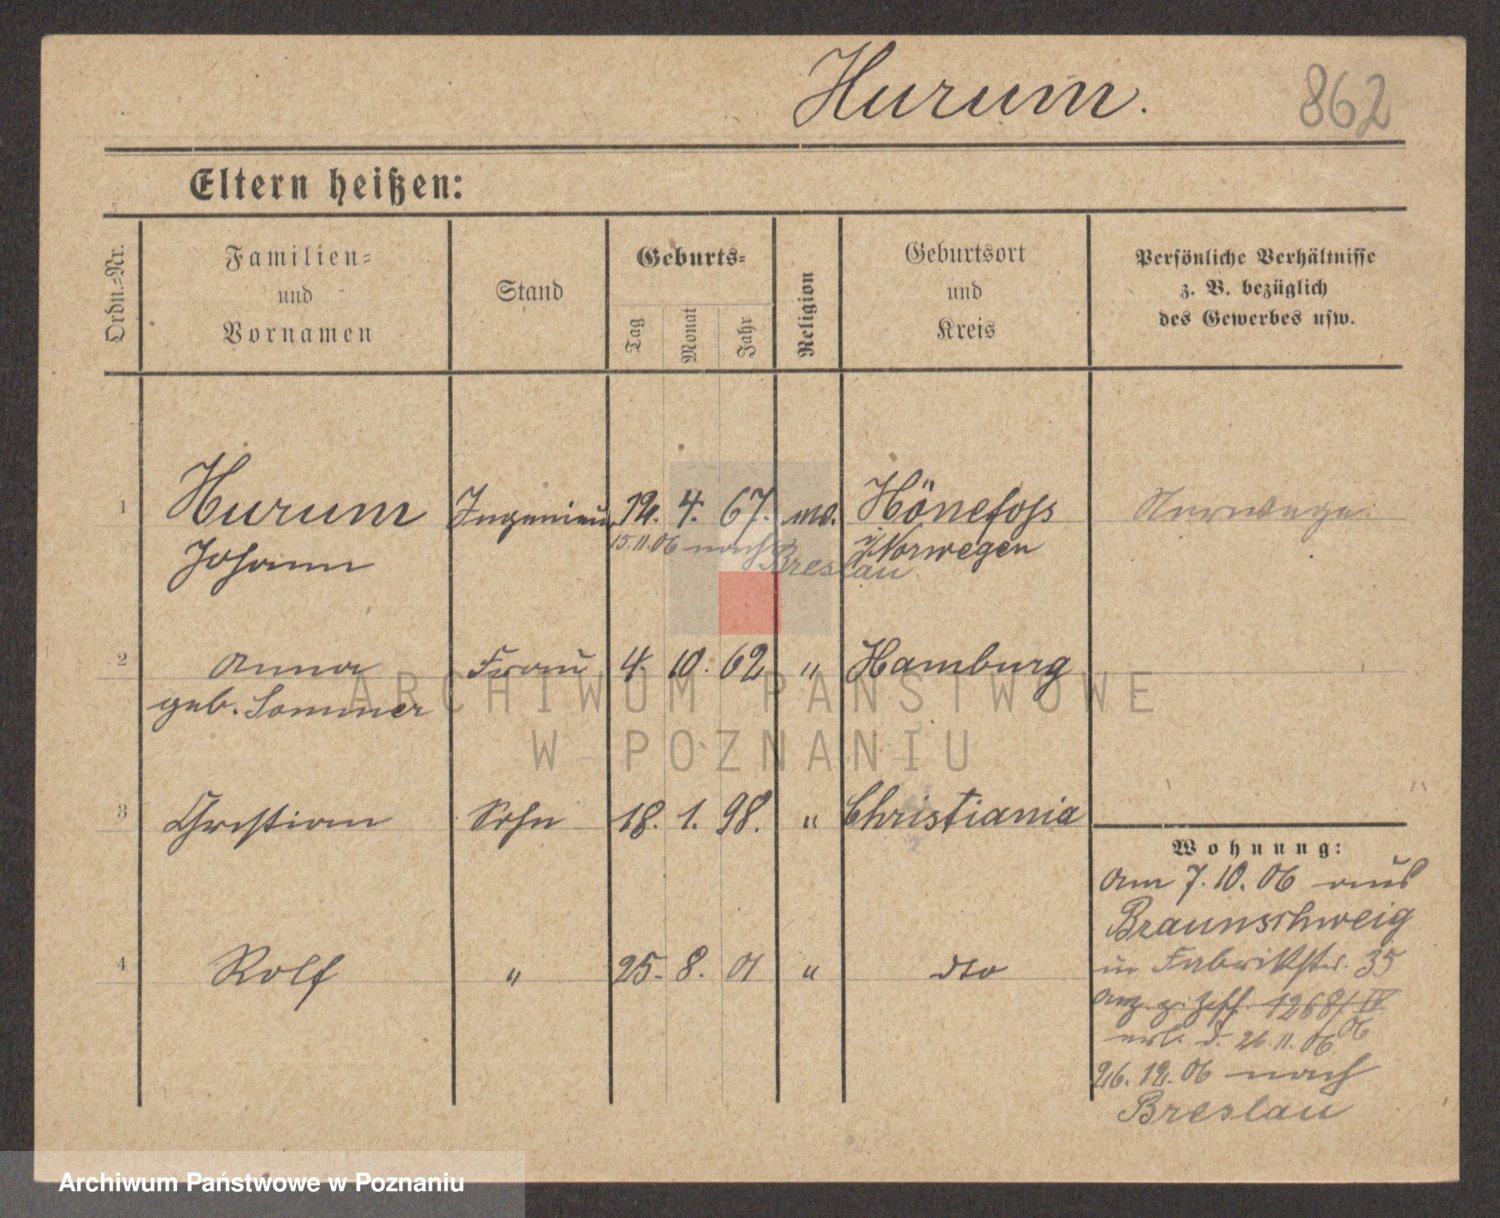 Hurum. 862
Eltern heißen:
Ordn.-Nr.
Familien-
und
Vornamen
Stand
Geburts-
Tag
Monat
Jahr
Religion
Geburtsort
und
Kreis
Persönliche Verhältnisse
z. B. bezüglich
des Gewerbes usw.
1 Hurum Ingenieur 12. 4. 67. Hönefoss Norwege
Johann 15.11.06 nach Breslau Norwegen
2 Anna Frau 4. 10. 62 " Hamburg
geb. Sommer
3 Christian Sohn 18. 1. 98. " Christiania
4 Rolf " 25. 8. 01 " dto
Wohnung:
am 7.10.06 aus
Braunschweig
in Fabrikstr. 35
1268/IV
06
d. 26.11.06
26.12.06 nach
Breslau
ARCHIWUM PAŃSTWOWE
W POZNANIU
Archiwum Państwowe w Poznaniu